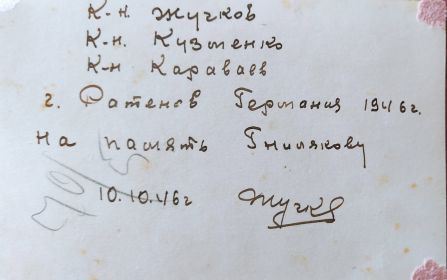 К-н. Жучков
К-н. Кузменко
К-н Караваев
г. Ратенов Германия 1946г.
На память Гнилякову
10.10.46г Жучк